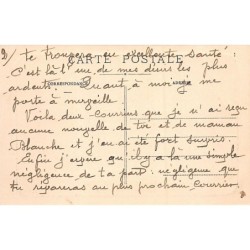 2) te trouvera en excellente santé.
CARTE POSTALE
C'est là l'un de mes désirs les plus
CORRESPONDANCE
ardents. Quant à moi, je me
porte à merveille.
Voilà deux courriers que je n'ai reçu
aucune nouvelle de toi et de maman
Blanche et j'en ai été fort surpris.
Enfin j'espère qu'il y a là une simple
négligence de ta part: négligence que
tu répareras au plus prochain courrier.